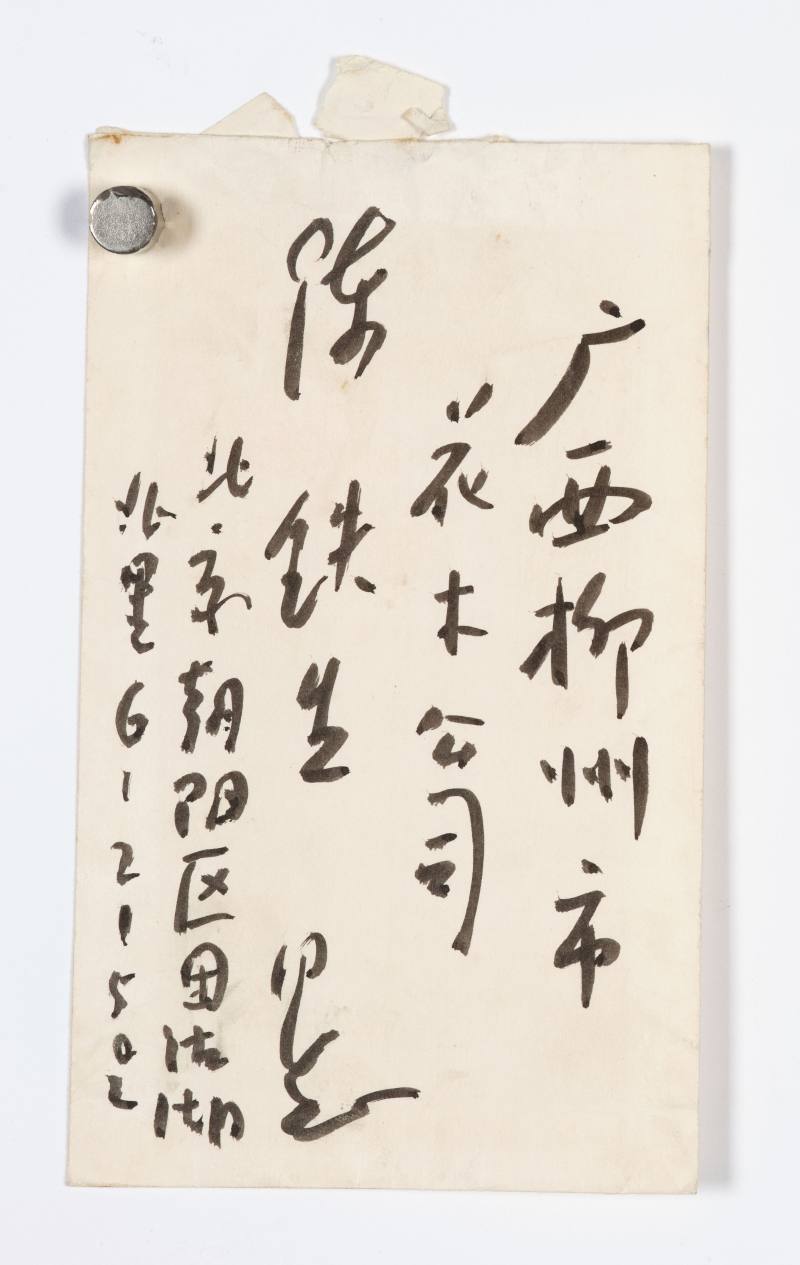 广西柳州市
花木公司
陈铁生 同志
北京朝阳区团结湖
北里6-1-2-1-502